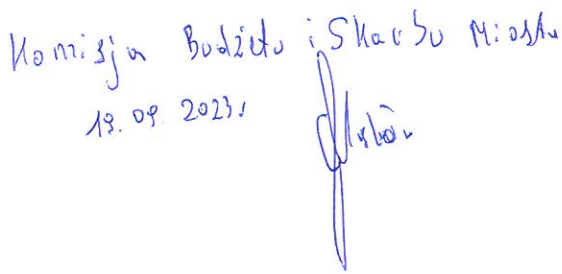 Komisja Budżetu i Skarbu Miasta
19.09.2023r.